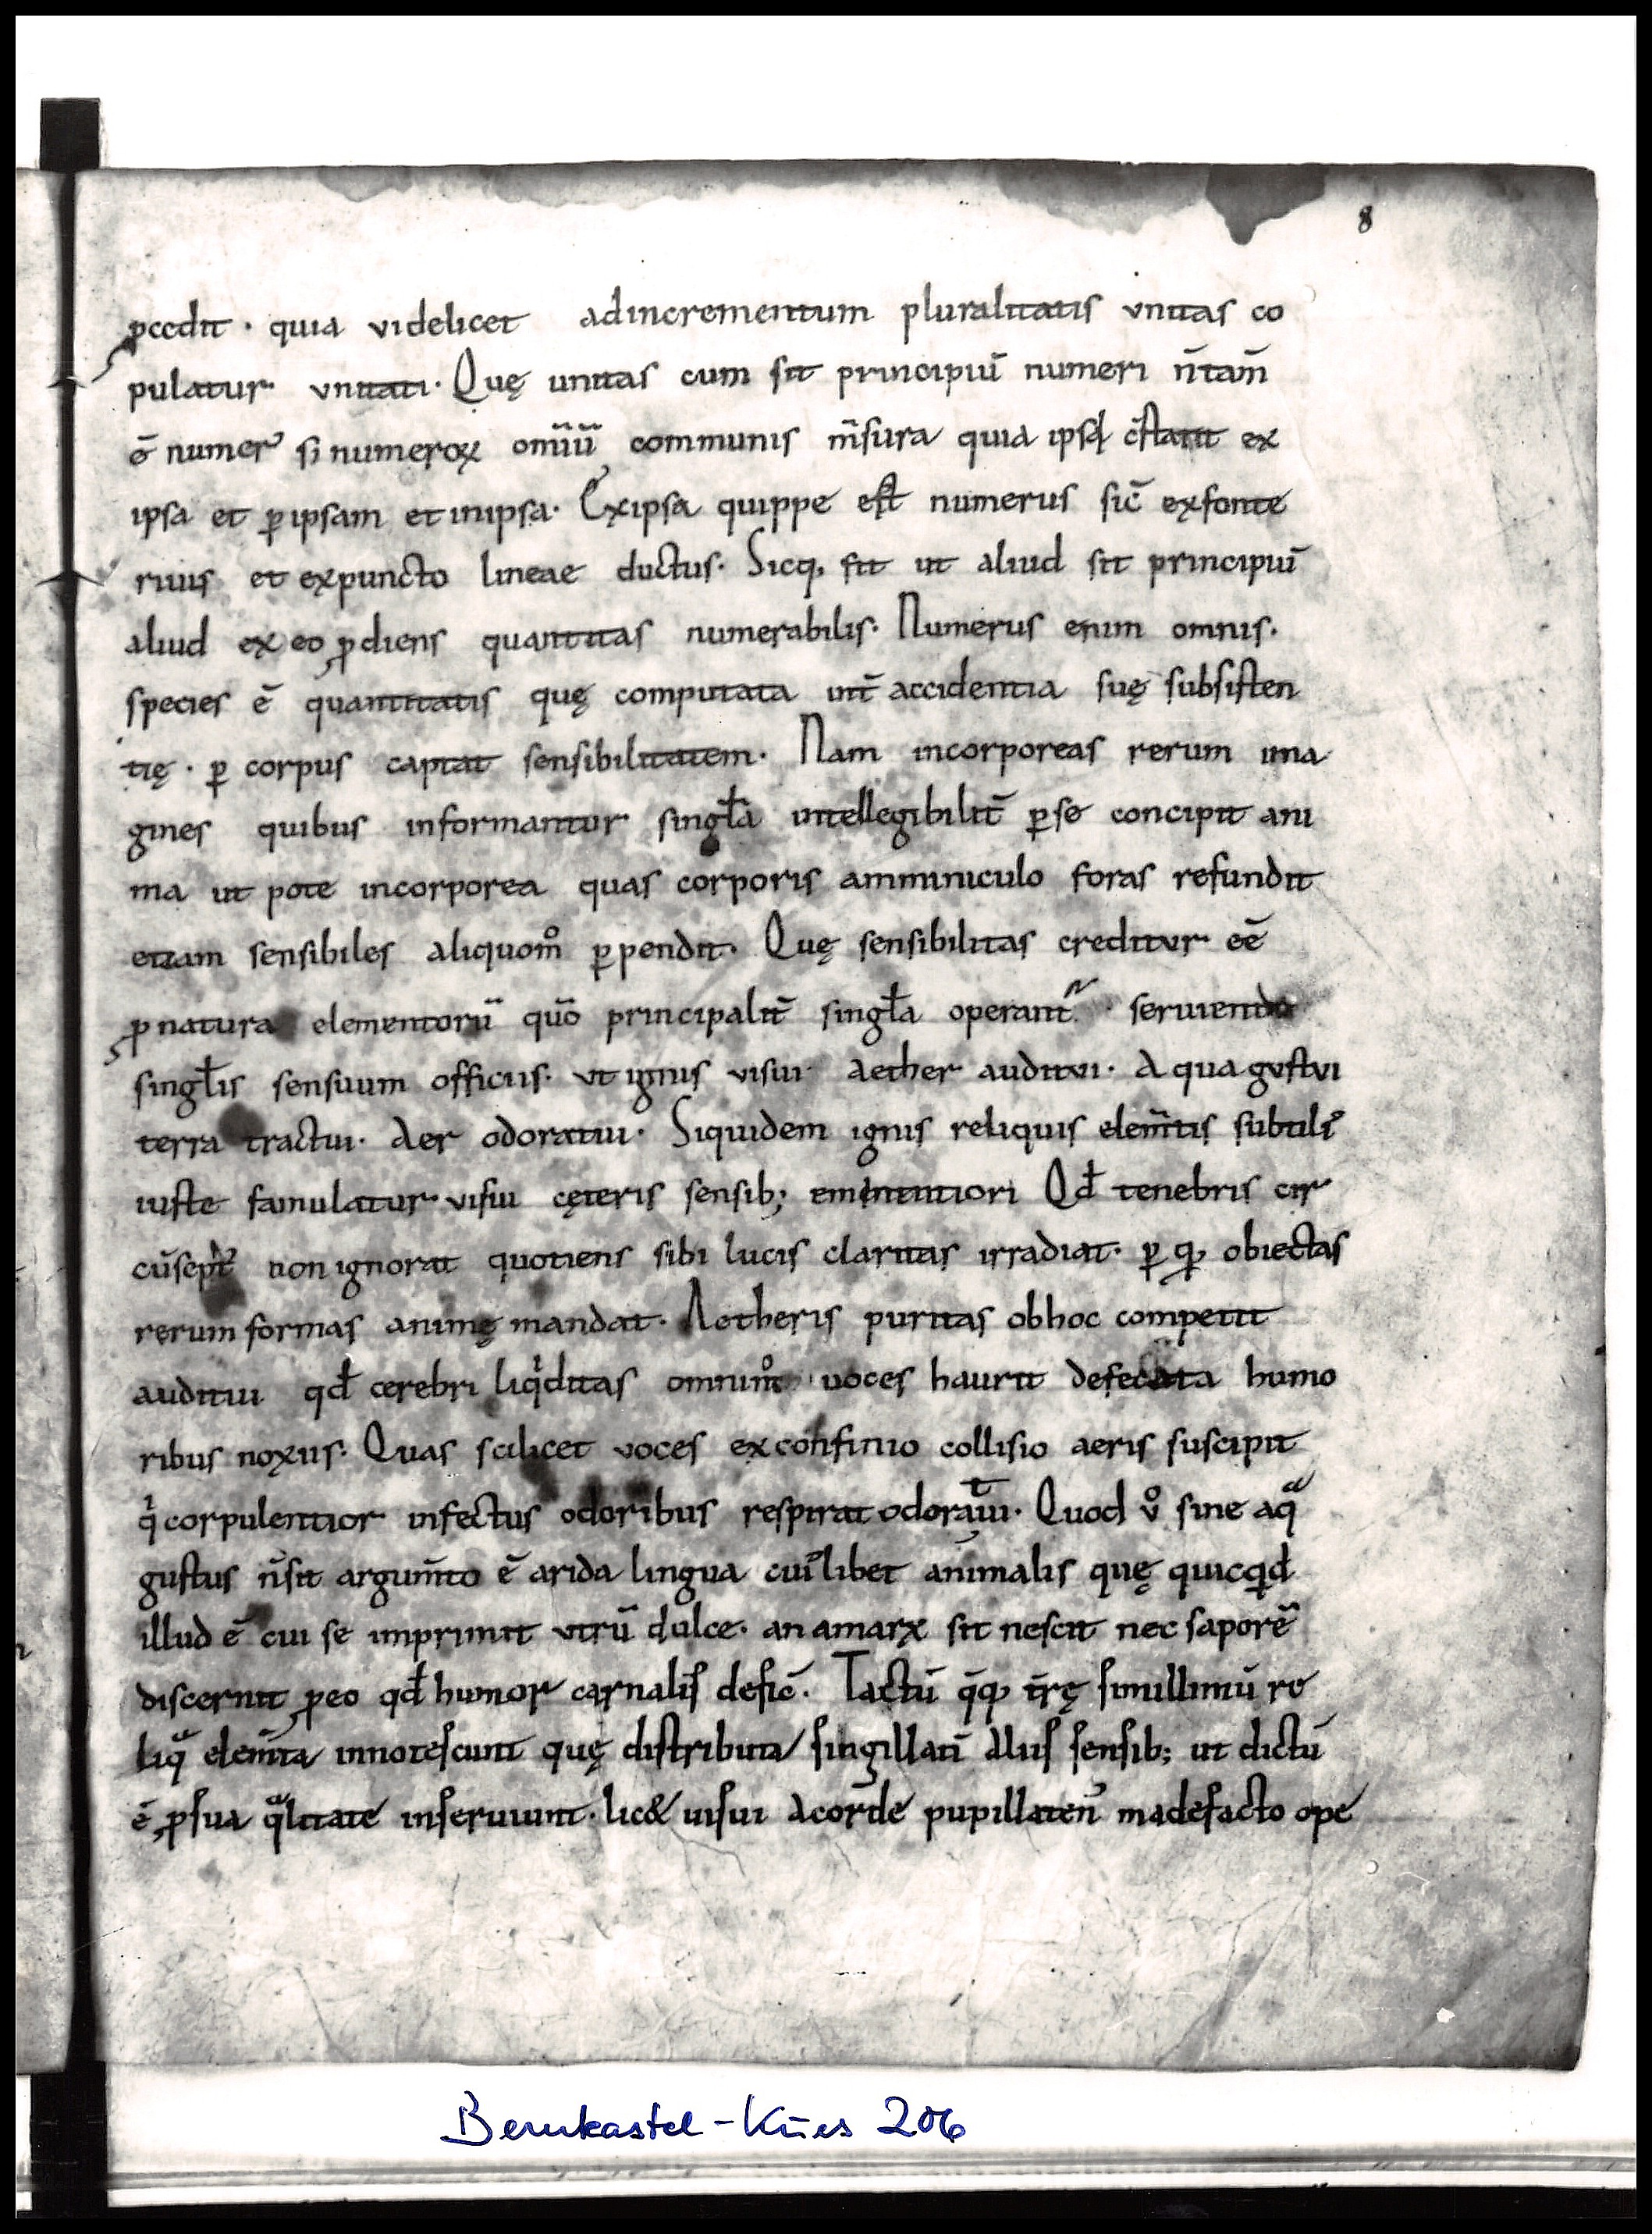 8
ꝓcedit · quia videlicet adincrementum pluralitatis vnitas co
pulatur vnitati· Quę unitas cum sit principiū numeri n̄tam̄
ē numer᾽ si numeroꝝ om̄iū communis m̄sura quia ipsi c̄stant ex
ipsa et ꝑipsam et inipsa· Exipsa quippe est numerus sic̄ exfonte
riuus et expuncto lineae ductus· Sicq; fit ut aliud sit principiū
aliud ex eo ꝓdiens quantitas numerabilis· Numerus enim omnis·
species ē quantitatis quę computata int̄ accidentia suę subsisten
tię · ꝑ corpus captat sensibilitatem· Nam incorporeas rerum ima
gines quibus informantur singl̄a intellegibilit̄ ꝑse concipit ani
ma ut pote incorporea quas corporis amminiculo foras refundit
etiam sensibiles aliquom̊ ꝑpendit· Quę sensibilitas creditur eē
ꝓnatura elementorū quō principalit̄ singl̄a operant᷑ · seruiendo
singl̄is sensuum officiis· vt ignis visui· aether auditui· Aqua gustui
terra tractui· Aer odoratui· Siquidem ignis reliquis elem̄tis subtili᾽
iuste famulatur visui cęteris sensib; eminentiori Qd̄ tenebris cir
cūsept᾽ non ignorat quotiens sibi lucis claritas irradiat· ꝑ q; obiectas
rerum formas animę mandat· Aetheris puritas obhoc competit
auditui qd̄ cerebri liqͥditas omnim̊ voces haurit defecata humo
ribus noxiis· Quas scilicet voces exconfinio collisio aeris suscipit
qͥ corpulentior infectus odoribus respirat odoratui· Quod v̊ sine aqͣ
gustus n̄sit argum̄to ē arida lingua cui᾽libet animalis quę quicqͥd
illud ē cui se imprimit vtrū dulce· an amarꝝ sit nescit nec saporē
discernit ꝓeo qd̄ humor carnalis defic̄· Tactū q̄q; tr̄ę simillimū re
liqͣ elem̄ta innotescunt quę distributa singillati᷒ aliis sensib; ut dictū
ē ꝓsua qͣlitate inseruiunt· lic& uisui acorde pupillaten᾽ madefacto ope
Bernkastel-Kues 206